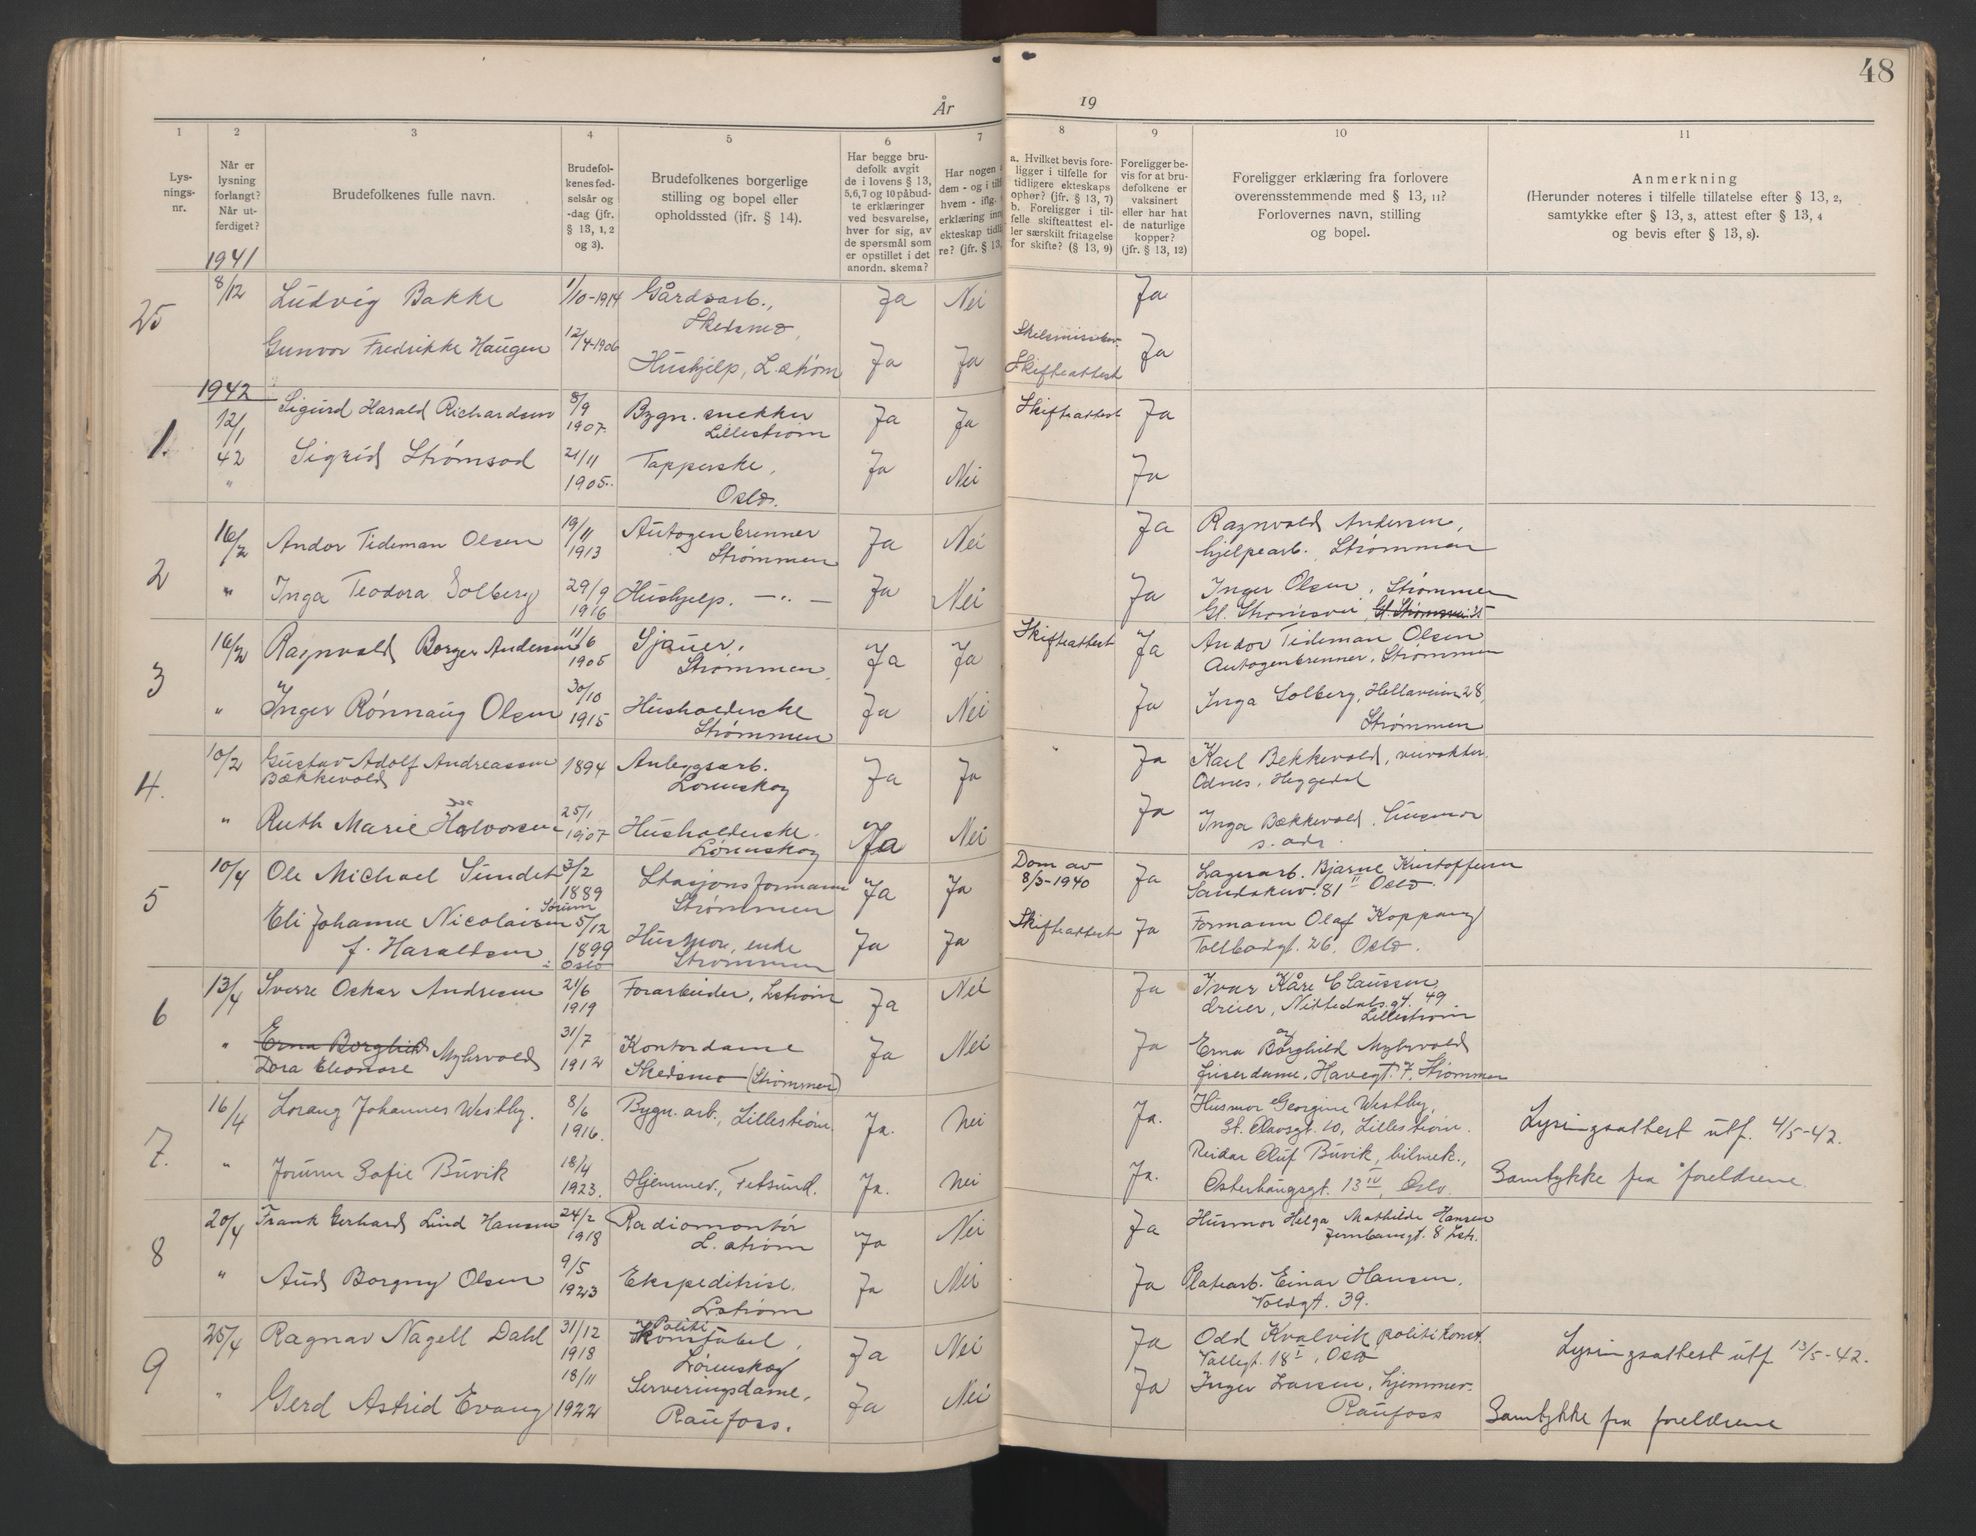 48
År 19
1 2 3 4 5 6 7 8 9 10 11
Lys-
nings-
nr.
Når er
lysning
forlangt?
Når ut-
ferdiget?
Brudefolkenes fulle navn.
Brudefol-
kenes fød-
selsår og
-dag (jfr.
§ 13, 1, 2
og 3).
Brudefolkenes borgerlige
stilling og bopel eller
opholdssted (jfr. § 14).
Har begge bru-
defolk avgit
de i lovens § 13,
5,6,7 og 10 påbud-
te erklæringer
ved besvarelse,
hver for sig, av
de spørsmål som
er opstillet i det
anordn. skema?
Har nogen
dem - og i tilf
hvem - iflg.
erklæring inn
ekteskap tidl
re? (jfr. § 13,
a. Hvilket bevis fore-
ligger i tilfelle for
tidligere ekteskaps
ophør? (jfr. § 13, 7)
b. Foreligger i til-
felle skifteattest el-
ler særskilt fritagelse
for skifte? (§ 13, 9)
Foreligger be-
vis for at bru-
defolkene er
vaksinert
eller har hat
de naturlige
kopper?
(jfr. § 13, 12)
Foreligger erklæring fra forlovere
overensstemmende med § 13, 11?
Forlovernes navn, stilling
og bopel.
Anmerkning
(Herunder noteres i tilfelle tillatelse efter § 13, 2,
samtykke efter § 13, 3, attest efter § 13, 4
og bevis efter § 13, 8).
1941
25 8/12 Ludvig Bakke 1/10-1914 Gårdsarb., Ja Nei Ja
Skedsmo,
Gunvor Fredrikke Haugen 12/4-1906 Hushjelp, L.strøm Ja Ja Ja
Skifteattest
1942
1. 12/1 Sigurd Harald Richardsen 8/9 Bygn. snekker Ja Ja Skifteattest Ja
42 1907. Lillestrøm
" Sigrid Strømsod 21/11 Ja Nei Ja
1905. Oslo.
2 16/2 Andor Tideman Olsen 19/11 Autogenbrenner Ja Nei Ja Ragnvald Andersen,
1913 Strømmen hjelpearb. Strømmen
" Inga Teodora Solberg 29/9 Hushjelp. —"— Ja Nei Ja Inger Olsen, Strømmen
1916 Gl. Strømsvei
3 16/2 Ragnvald Borger Andersen 11/6 Sjauer, Ja Ja Skifteattest Ja Andor Tideman Olsen
1905 Strømmen, Autogenbrenner, Strømmen
" Inger Rønnaug Olsen 30/10 Husholderske Ja Nei Ja Inga Solberg, Hellaveien 28,
1915 Strømmen Strømmen
4. 10/2 Gustav Adolf Andreassen 1894 Anleggsarb. Ja Ja " Ja Karl Bekkevold,
Bækkevold Lørenskog Odnes, Heggedal
" Ruth Marie Halvorsen 25/1 Husholderske. Ja Nei Ja Inga Bækkevold, husmor
1907 Lørenskog s. adr.
5 10/4 Ole Michael Sundet 3/2 Stasjonsformann Ja Ja Dom av Ja Lagerarb. Bjarne Kristoffersen
1889 Strømmen 8/3-1940 81 II Oslo.
Sørum
Eli Johanne Nicolaisen 5/12 Husmor, enke Ja Ja Skifteattest Ja Formann Olaf Koppang
f. Haraldsen 1899 Strømmen Tollbodgt. 26, Oslo.
Oslo
6 13/4 Sverre Oskar Andresen 21/6 Forarbeider, Lstrøm Ja Nei Ja Ivar Kåre Claussen
1919 dreier, Nittedalsgt. 49.
Lillestrøm
" Erna Borghild Myhrvold 31/7 Kontordame Ja Nei Ja Erna Borghild Myhrvold
Dora Eleonore 1912 Skedsmo (Strømmen) frisørdame, Havegt. 7, Strømmen
7. 16/4 Lorang Johannes Westby. 8/6 Bygn. arb., Lillestrøm. Ja. Nei Ja. Husmor Georgine Westby, Lysningsattest utf. 4/5-42.
1916. St. Olavsgt. 10, Lillestrøm.
" Jorunn Sofie Buvik 18/4 Hjemmev., Fetsund. Ja. Nei Ja. Reidar Oluf Buvik, bilmek., Samtykke fra foreldrene.
1923. Østerhaugsgt. 13 IV, Oslo.
8 20/4 Frank Gerhard Lind Hansen 24/2 Radiomontør Ja Nei Ja Husmor Helga Mathilde Hansen
1918 L. strøm Jernbanegt. 8 Lstr.
" Aud Borgny Olsen 9/5 Ekspeditrise. Ja Nei Ja Platearb. Einar Hansen,
1923 Lstrøm Voldgt. 39.
9 25/4 Ragnar Nagell Dahl 31/12 Politi Ja Nei Ja Odd Kvalvik politikonst. Lysningsattest utf 13/5-42.
1918 Konstabel, Tollegt. 18 I, Oslo
Lørenskog
" Gerd Astrid Evang 18/11 Serveringsdame, Ja Nei Ja Inger Larsen, hjemmev. Samtykke fra foreldrene
1922 Raufoss. Raufoss